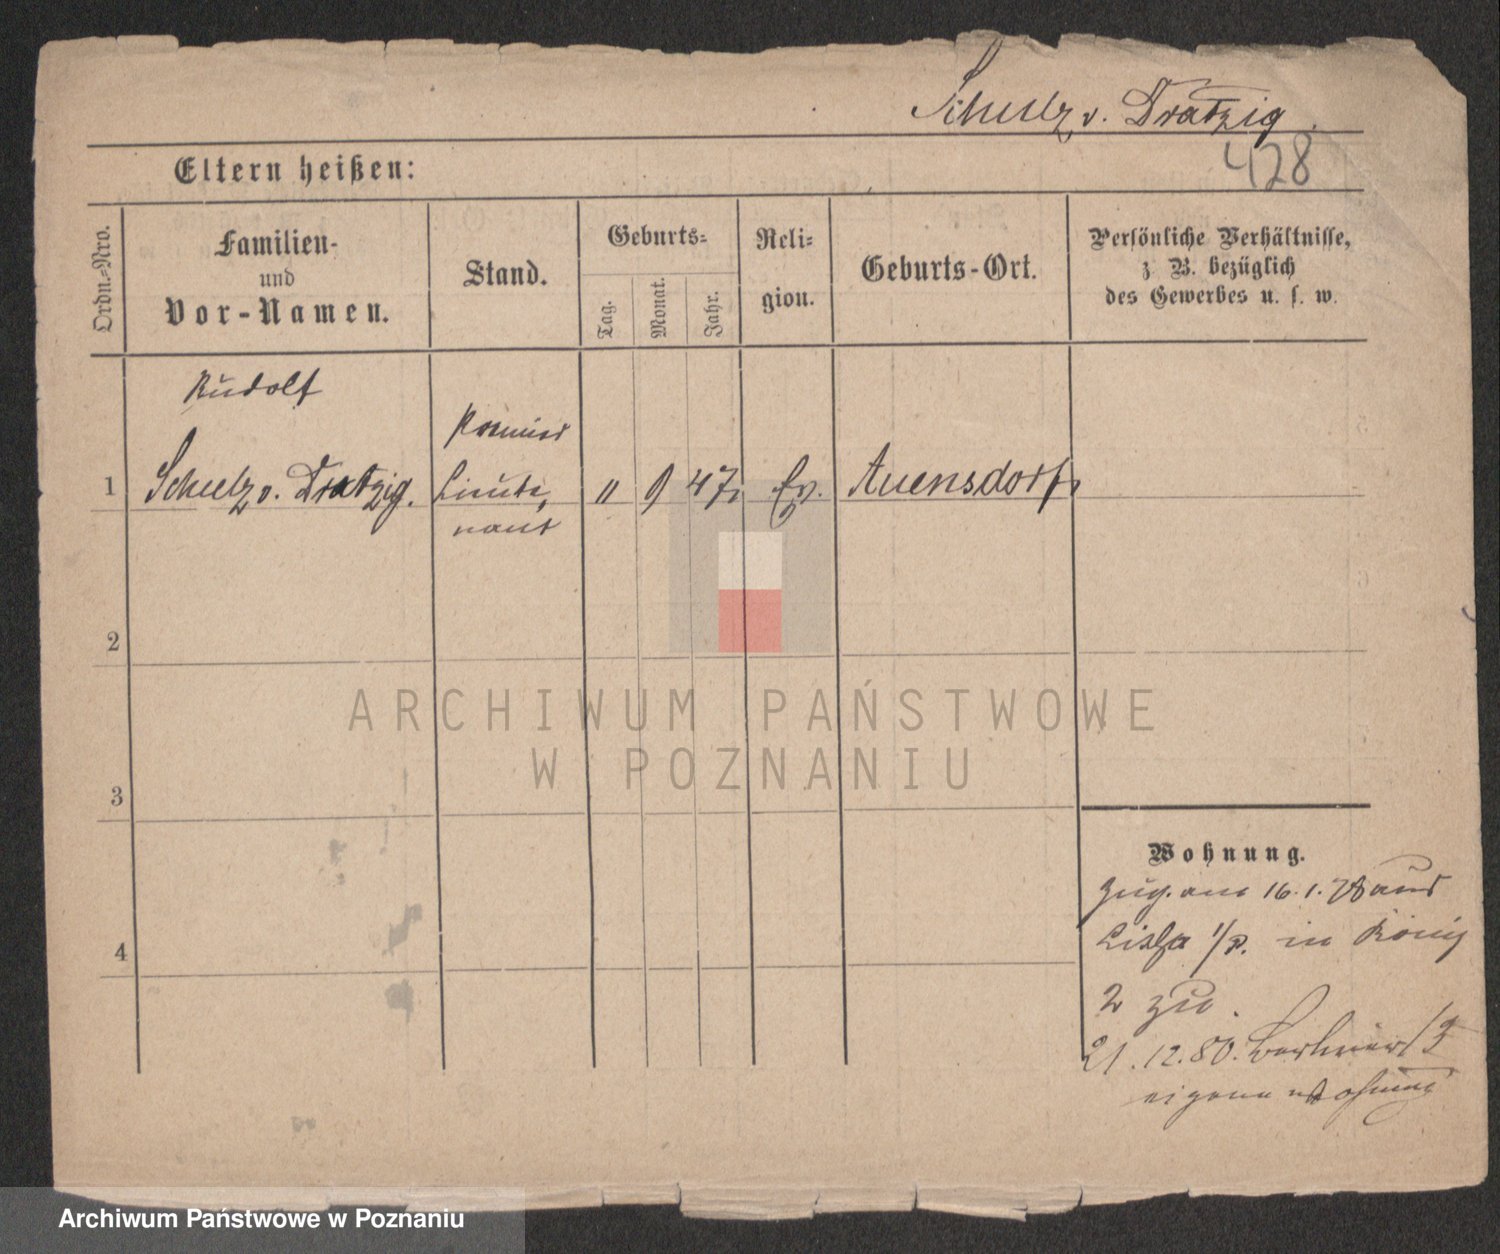 Schulz v. Dratzig.
428
Eltern heißen:
Ordn.-Nro.
Familien-
und
Vor-Namen.
Stand.
Geburts-
Tag.
Monat.
Jahr.
Reli-
gion.
Geburts-Ort.
Persönliche Verhältnisse,
z. B. bezüglich
des Gewerbes u. s. w.
Rudolf
Premier
1 Schulz v. Dratzig. Lieute, " 9 47. Ev. Auensdorf,
nant
2
ARCHIWUM PAŃSTWOWE
W POZNANIU
3
Wohnung.
Zug. am 16. 1. 78 aus
Lissa i/P. in König
4
2 zu.
21. 12. 80.
eigene Wohnung
Archiwum Państwowe w Poznaniu